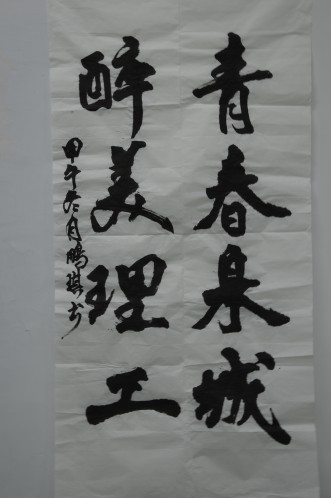 青春泉城
醉美理工
甲午冬月鹏琪书